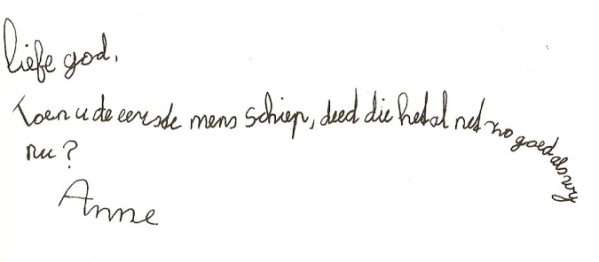 liefe god,
Toen u de eerste mens schiep, deed die het al net zo goed als wij
nu?
Anne